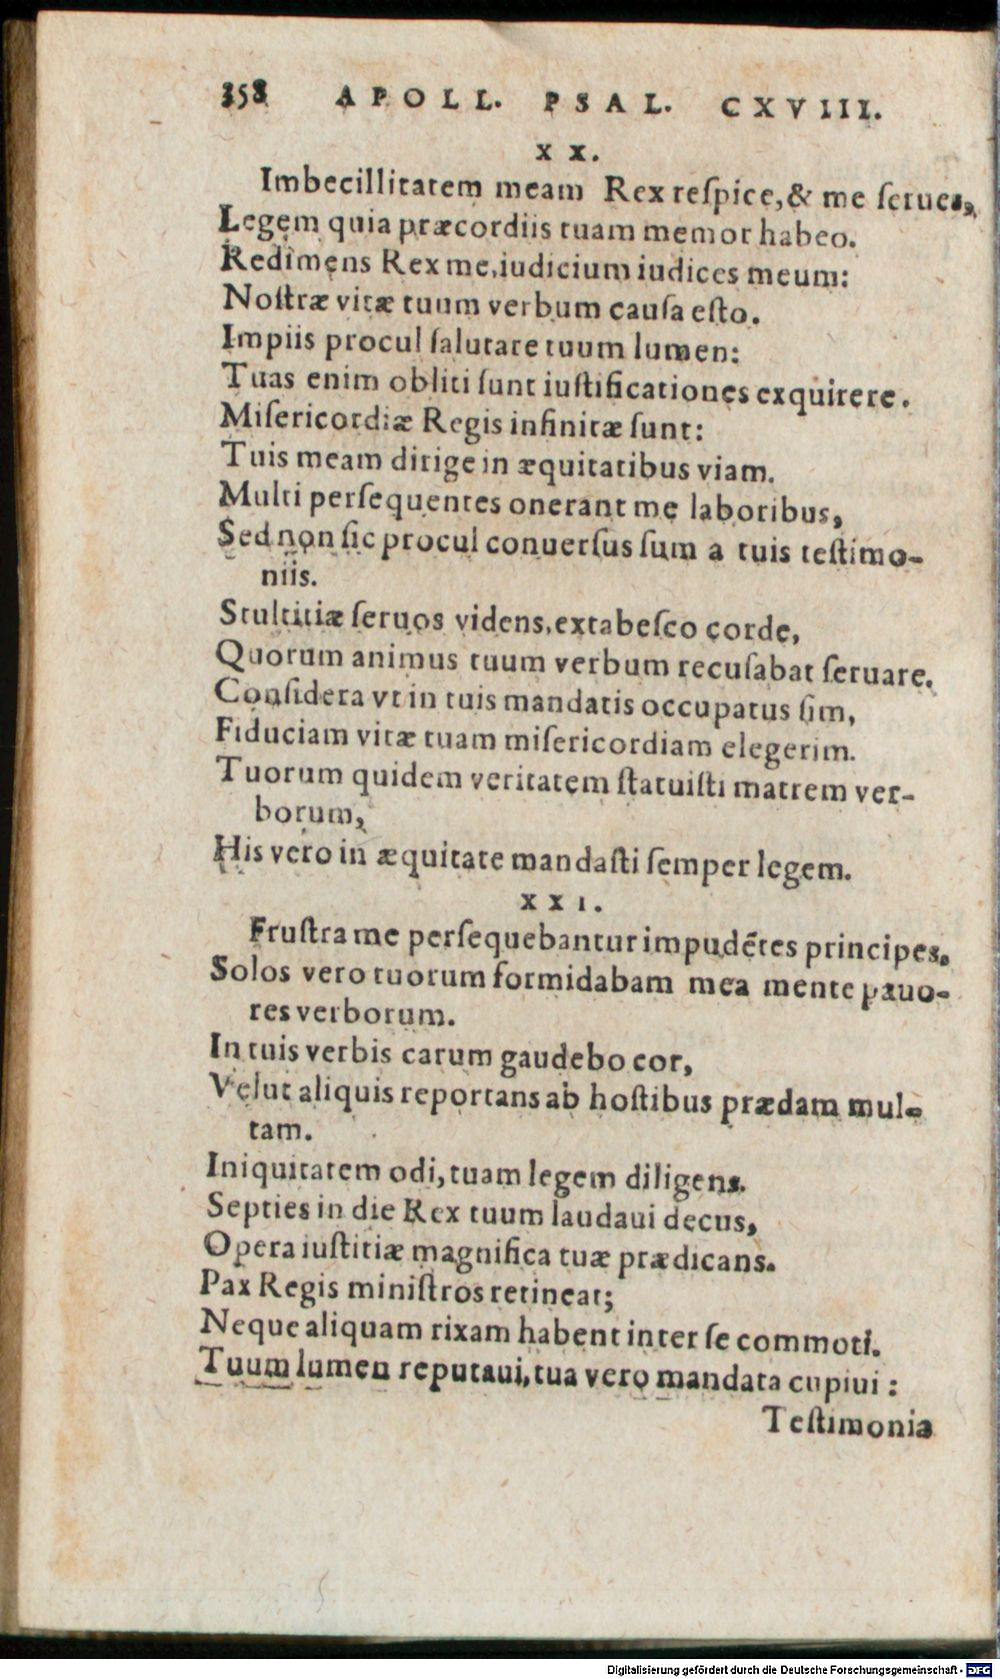 358 APOLL. PSAL. CXVIII.
XX.
Imbecillitatem meam Rex reſpice, & me ſerues,
Legem quia præcordiis tuam memor habeo.
Redimens Rex me, iudicium iudices meum:
Noſtræ vitæ tuum verbum cauſa eſto.
Impiis procul ſalutare tuum lumen:
Tuas enim obliti ſunt iuſtificationes exquirere.
Miſericordiæ Regis infinitæ ſunt:
Tuis meam dirige in æquitatibus viam.
Multi perſequentes onerant me laboribus,
Sed non ſic procul conuerſus ſum a tuis teſtimo-
niis.
Stultitiæ ſeruos videns, extabeſco corde,
Quorum animus tuum verbum recuſabat ſeruare.
Conſidera vt in tuis mandatis occupatus ſim,
Fiduciam vitæ tuam miſericordiam elegerim.
Tuorum quidem veritatem ſtatuiſti matrem ver-
borum,
His vero in æquitate mandaſti ſemper legem.
XXI.
Fruſtra me perſequebantur impudētes principes.
Solos vero tuorum formidabam mea mente pauo-
res verborum.
In tuis verbis carum gaudebo cor,
Velut aliquis reportans ab hoſtibus prædam mul-
tam.
Iniquitatem odi, tuam legem diligens.
Septies in die Rex tuum laudaui decus,
Opera iuſtitiæ magnifica tuæ prædicans.
Pax Regis miniſtros retineat;
Neque aliquam rixam habent inter ſe commoti.
Tuum lumen reputaui, tua vero mandata cupiui:
Teſtimonia
Digitalisierung gefördert durch die Deutsche Forschungsgemeinschaft - DFG